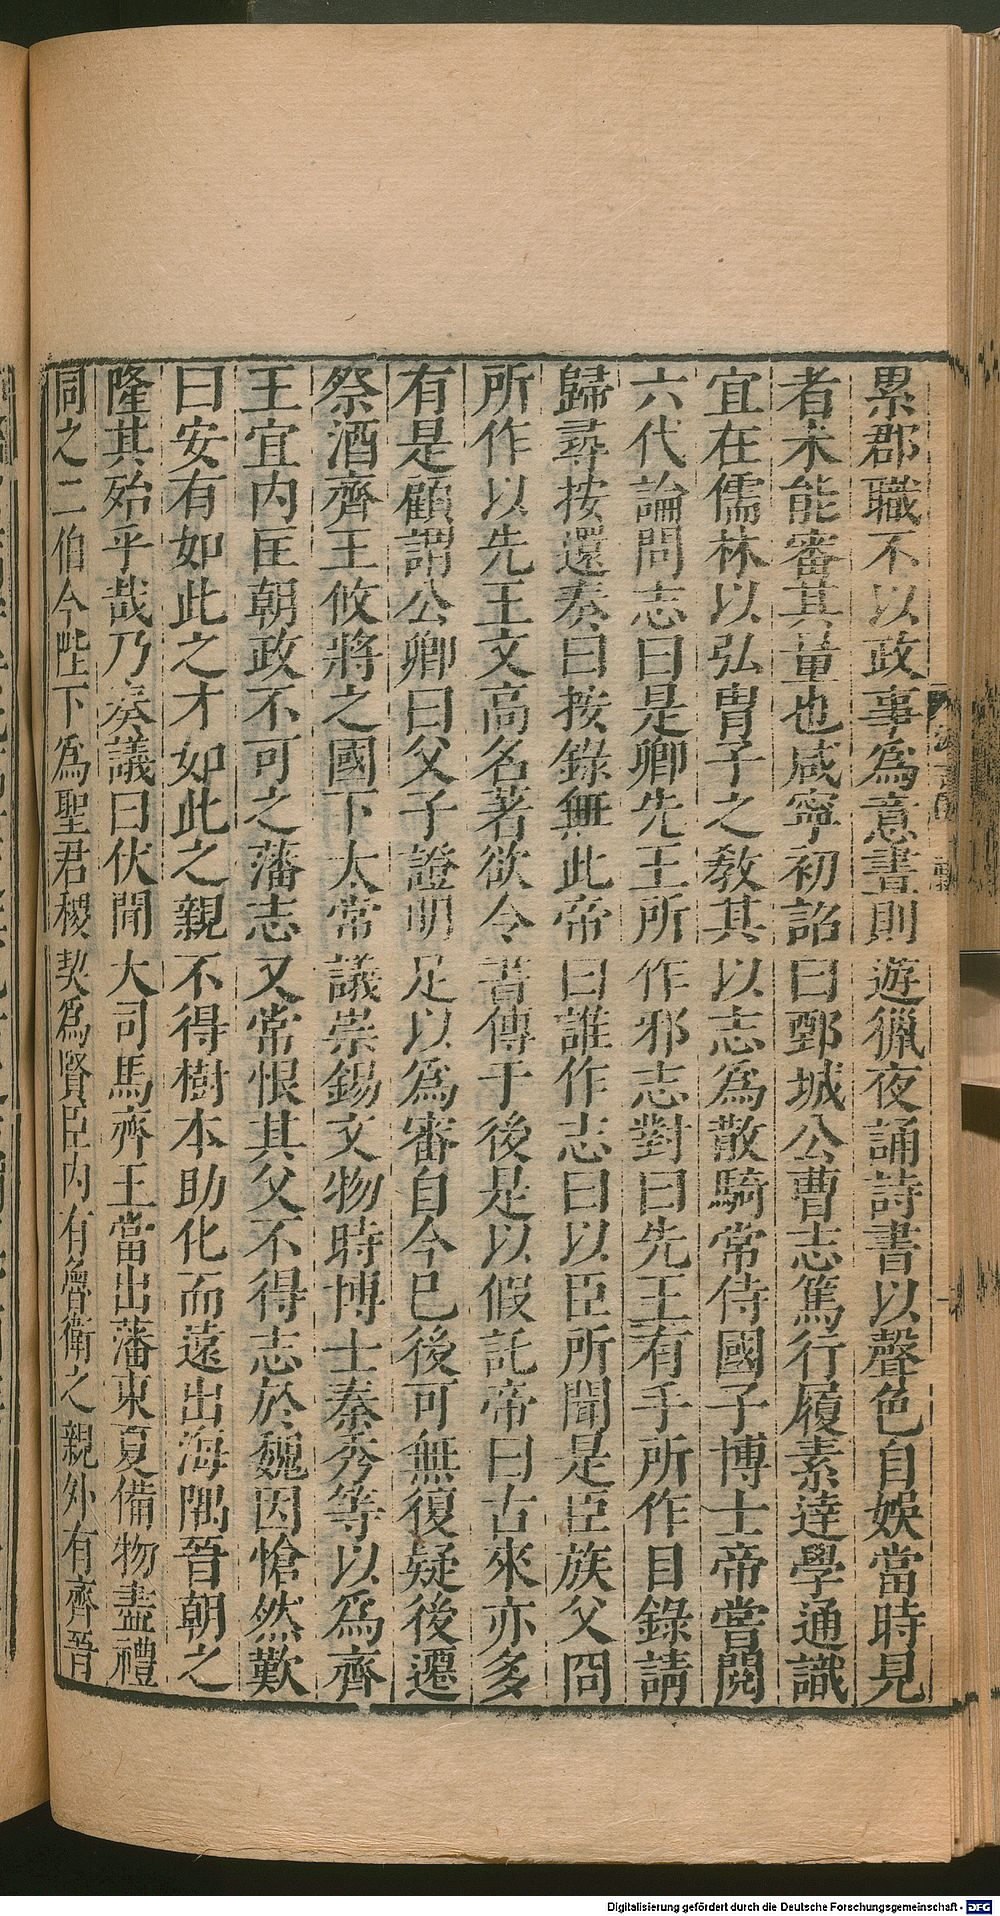 累郡職不以政事爲意晝則遊獵夜誦詩書以聲色自娛當時見
者未能審其量也咸寧初詔曰鄄城公曹志篤行履素達學通識
宜在儒林以弘胄子之敎其以志爲散騎常侍國子博士帝嘗閱
六代論問志曰是卿先王所作邪志對曰先王有手所作目錄請
歸尋按還奏曰按錄無此帝曰誰作志曰以臣所聞是臣族父冏
所作以先王文高名著欲令書傳于後是以假託帝曰古來亦多
有是顧謂公卿曰父子證明足以爲審自今已後可無復疑後遷
祭酒齊王攸將之國下太常議崇錫文物時博士秦秀等以爲齊
王宜内匡朝政不可之藩志又常恨其父不得志於魏因愴然歎
曰安有如此之才如此之親不得樹本助化而遠出海隅晉朝之
隆其殆乎哉乃奏議曰伏聞大司馬齊王當出藩東夏備物盡禮
同之二伯今陛下爲聖君稷契爲賢臣内有魯衛之親外有齊晉
Digitalisierung gefördert durch die Deutsche Forschungsgemeinschaft - DFG